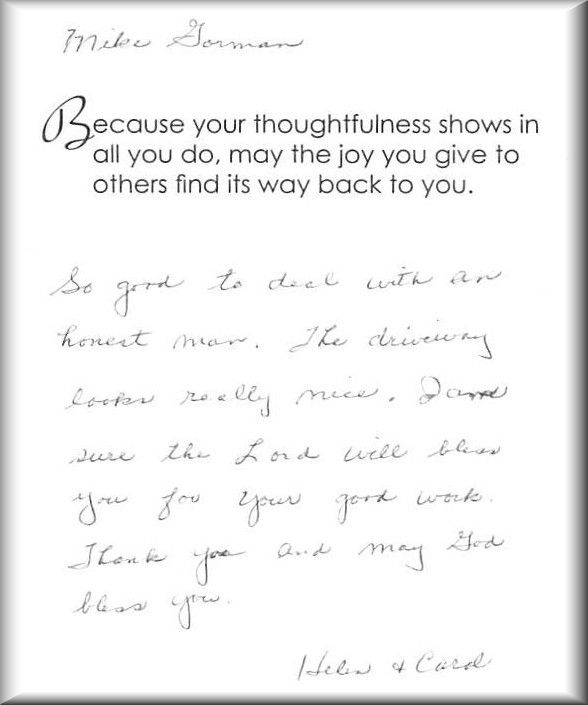 Mike Gorman
Because your thoughtfulness shows in
all you do, may the joy you give to
others find its way back to you.
So good to deal with an
honest man. The driveway
looks really nice. I am
sure the Lord will bless
you for your good work.
Thank you and may God
bless you.
Helen & Carol